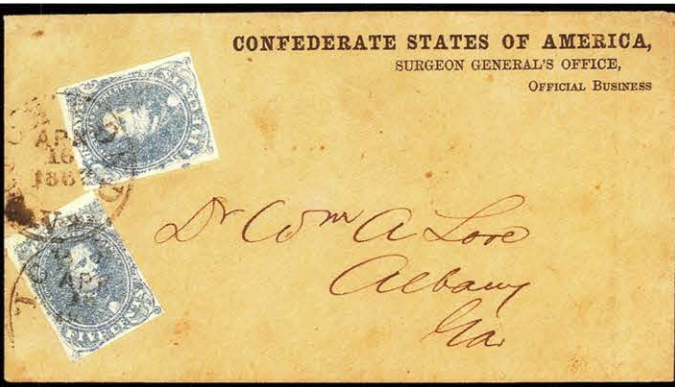 CONFEDERATE STATES OF AMERICA,
SURGEON GENERAL'S OFFICE,
OFFICIAL BUSINESS
APR
16
1862
Dr Wm A Love
Albany
Ga
APR
FIVE CENTS